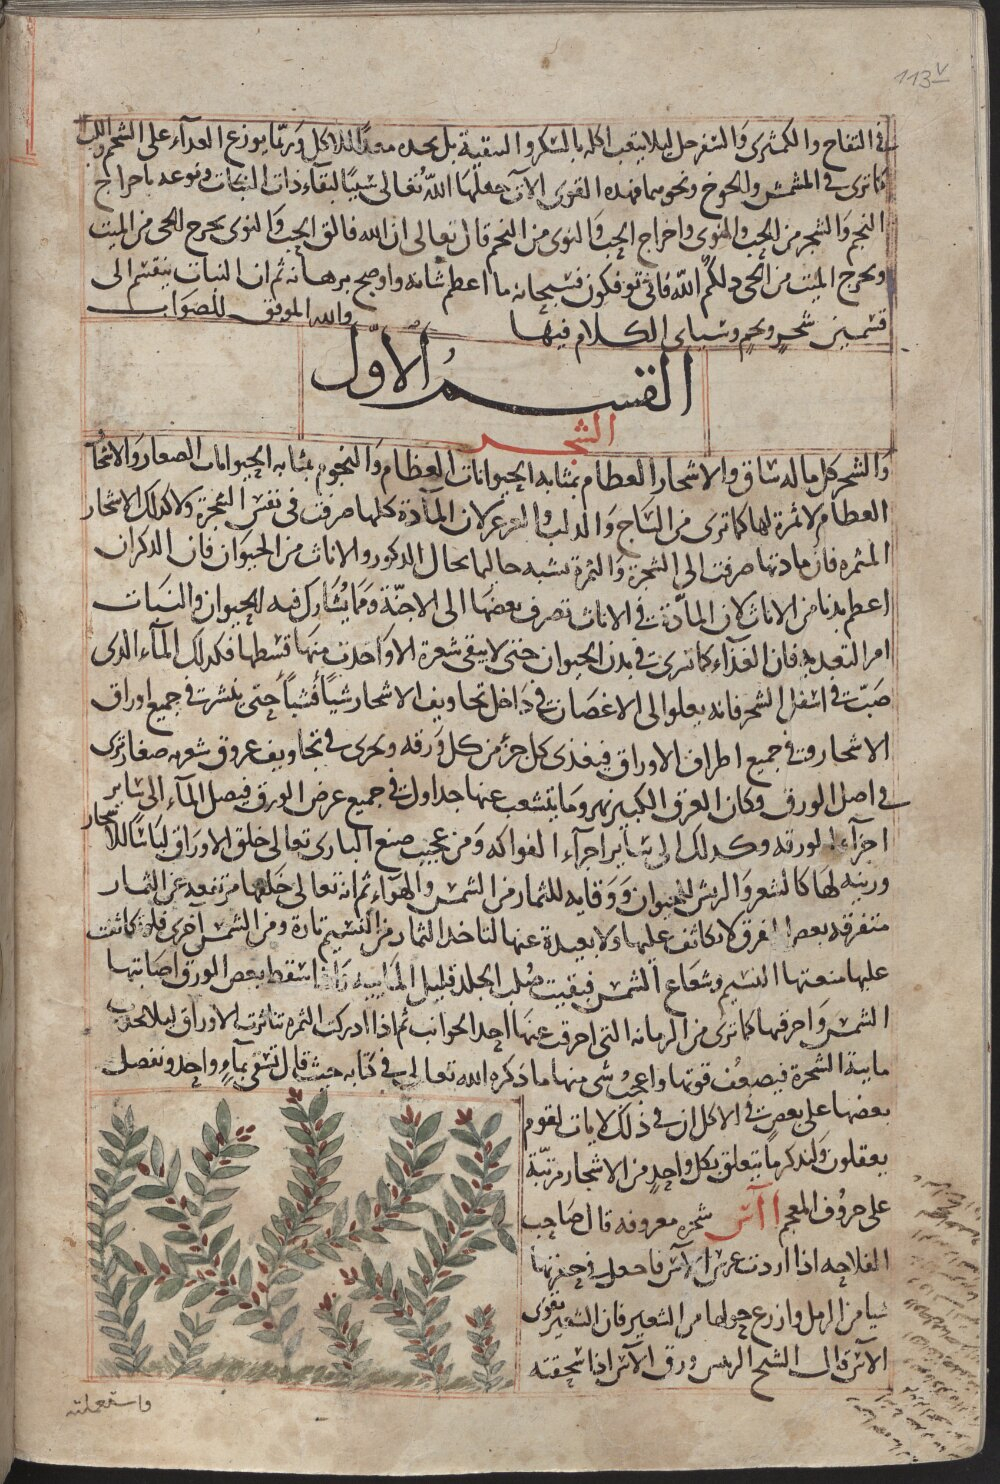 113v
في التفاح والكمثرى والسفرجل ليلا يتعب اكله بالتكسر والتنقية بل يجده معدا للاكل وربما يوزع الغدآء على الشحم واللب
كما ترى في المشمش والخوخ ونحوهما فهذه القوى الات جعلها الله تعالى سببا لبقاء ذات النبات ونوعه باخراج
النجم والشجر من الحب والنوى واخراج الحب والنوى من النجم قال تعالى ان الله فالق الحب والنوى يخرج الحي من الميت
ومخرج الميت من الحي ذلكم الله فانى توفكون فسبحانه ما اعظم شانه واوضح برهانه ثم ان النبات ينقسم الى
قسمين شجر ونجم وسياتي الكلام فيها والله الموفق للصواب
القسم الاول
الشجر
والشجر كل ماله ساق والاشجار العظام بمثابه الحيوانات العظام والنجوم بمثابه الحيوانات الصغار والاشجار
العظام لا ثمرة لها كما ترى من الساج والدلب والعرعر لان المادة كلها صرفت في نفس الشجرة ولا كذلك الاشجار
المثمره فان مادتها صرفت الى الشجرة والثمرة تشبه حالها بحال الذكور والاناث من الحيوان فان الذكران
اعظم بدنا من الاناث لان المادة في الاناث تصرف بعضها الى الاجنة ومما يشارك فيه الحيوان والنبات
امر التغديه فان الغذآء كما ترى في بدن الحيوان حتى لا يبقى شعرة الا واخذت منها قسطها فكذلك المآء الذي
صبت في اسفل الشجر فانه يعلوا الى الاغصان في داخل تجاويف الاشجار شيا فشيا حتى ينشرت في جميع اوراق
الاشجار وفي جميع اطراف الاوراق فيغذى كل جزء من كل ورقه ويجرى في تجاويف عروق شعريه صغار ترى
في اصل الورق وكان العرق الكبير نهر وما يتشعب عنها جداول في جميع عرض الورق فيصل المآء الى ساير
اجزآء الورقه وكذلك الى ساير اجزآء الفواكه ومن عجيب صنع البارى تعالى خلق الاوراق لباسا للاشجار
وزينه لها كالشعر والريش للحيوان ووقايه للثمار من الشمس والهوآء ثم انه تعالى خلقها مرتفعه عن الثمار
متفرقه بعض الفرق لا يكاثف عليها ولا بعيدة عنها لتاخذ الثمار من النسيم تارة ومن الشمس اخرى فلو تكاثفت
عليها منعتها النسيم وشعاع الشمس فبقيت صلب الجلد قليل المائيه واذا سقط بعض الورق اصابتها
الشمس واحرقها كما ترى من الرمانه التي احرق عنها احد الجوانب ثم اذا ادركت الثمره تناثرت الاوراق ليلا تجذب
مايية الشجرة فيضعف قوتها واعجب شى منها ما ذكره الله تعالى في كتابه حيث قال تسقى بمآء واحد ونفضل
بعضها على بعض في الاكل ان في ذلك لايات لقوم
يعقلون ولنذكر ما يتعلق بكل واحد من الاشجار مرتبة
على حروف المعجم ا آس شجره معروفه قال صاحب
الفلاحه اذا اردت غرس الآس فاجعل في حفرتها
شيا من الرمل وازرع حولها من الشعير فان الشعير يقوى
الآس قال الشيخ الرييس ورق الآس اذا سحقته
واستعملته